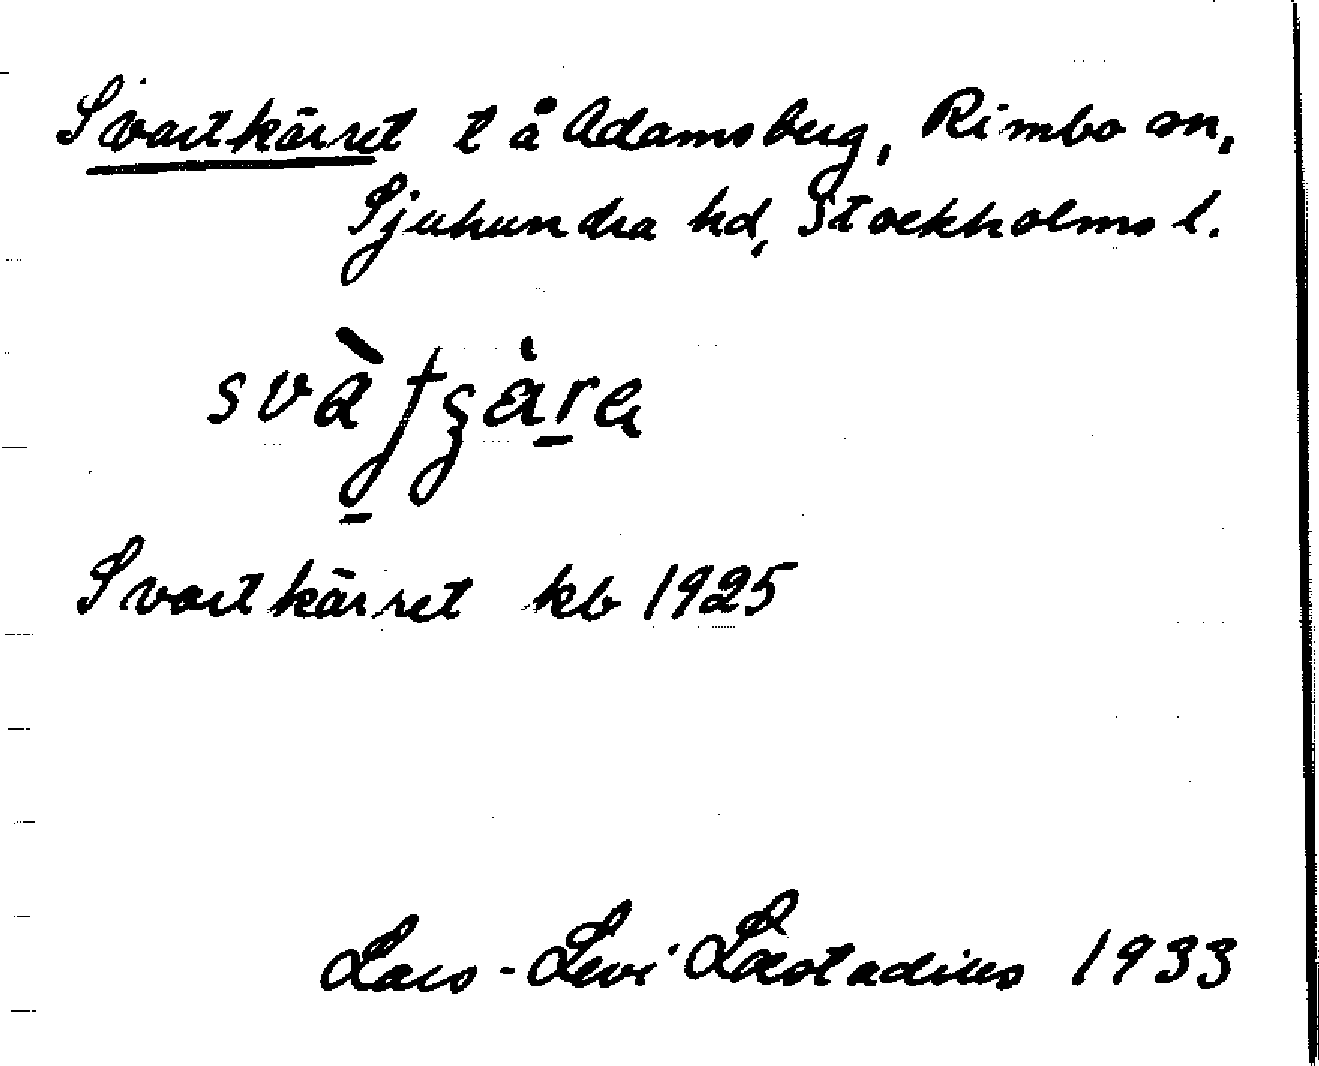 Svartkärret t å Adamsberg, Rimbo sn,
Sjuhundra hd, Stockholms l.
Svartkärret kb 1925
Lars-Levi Læstadius 1933